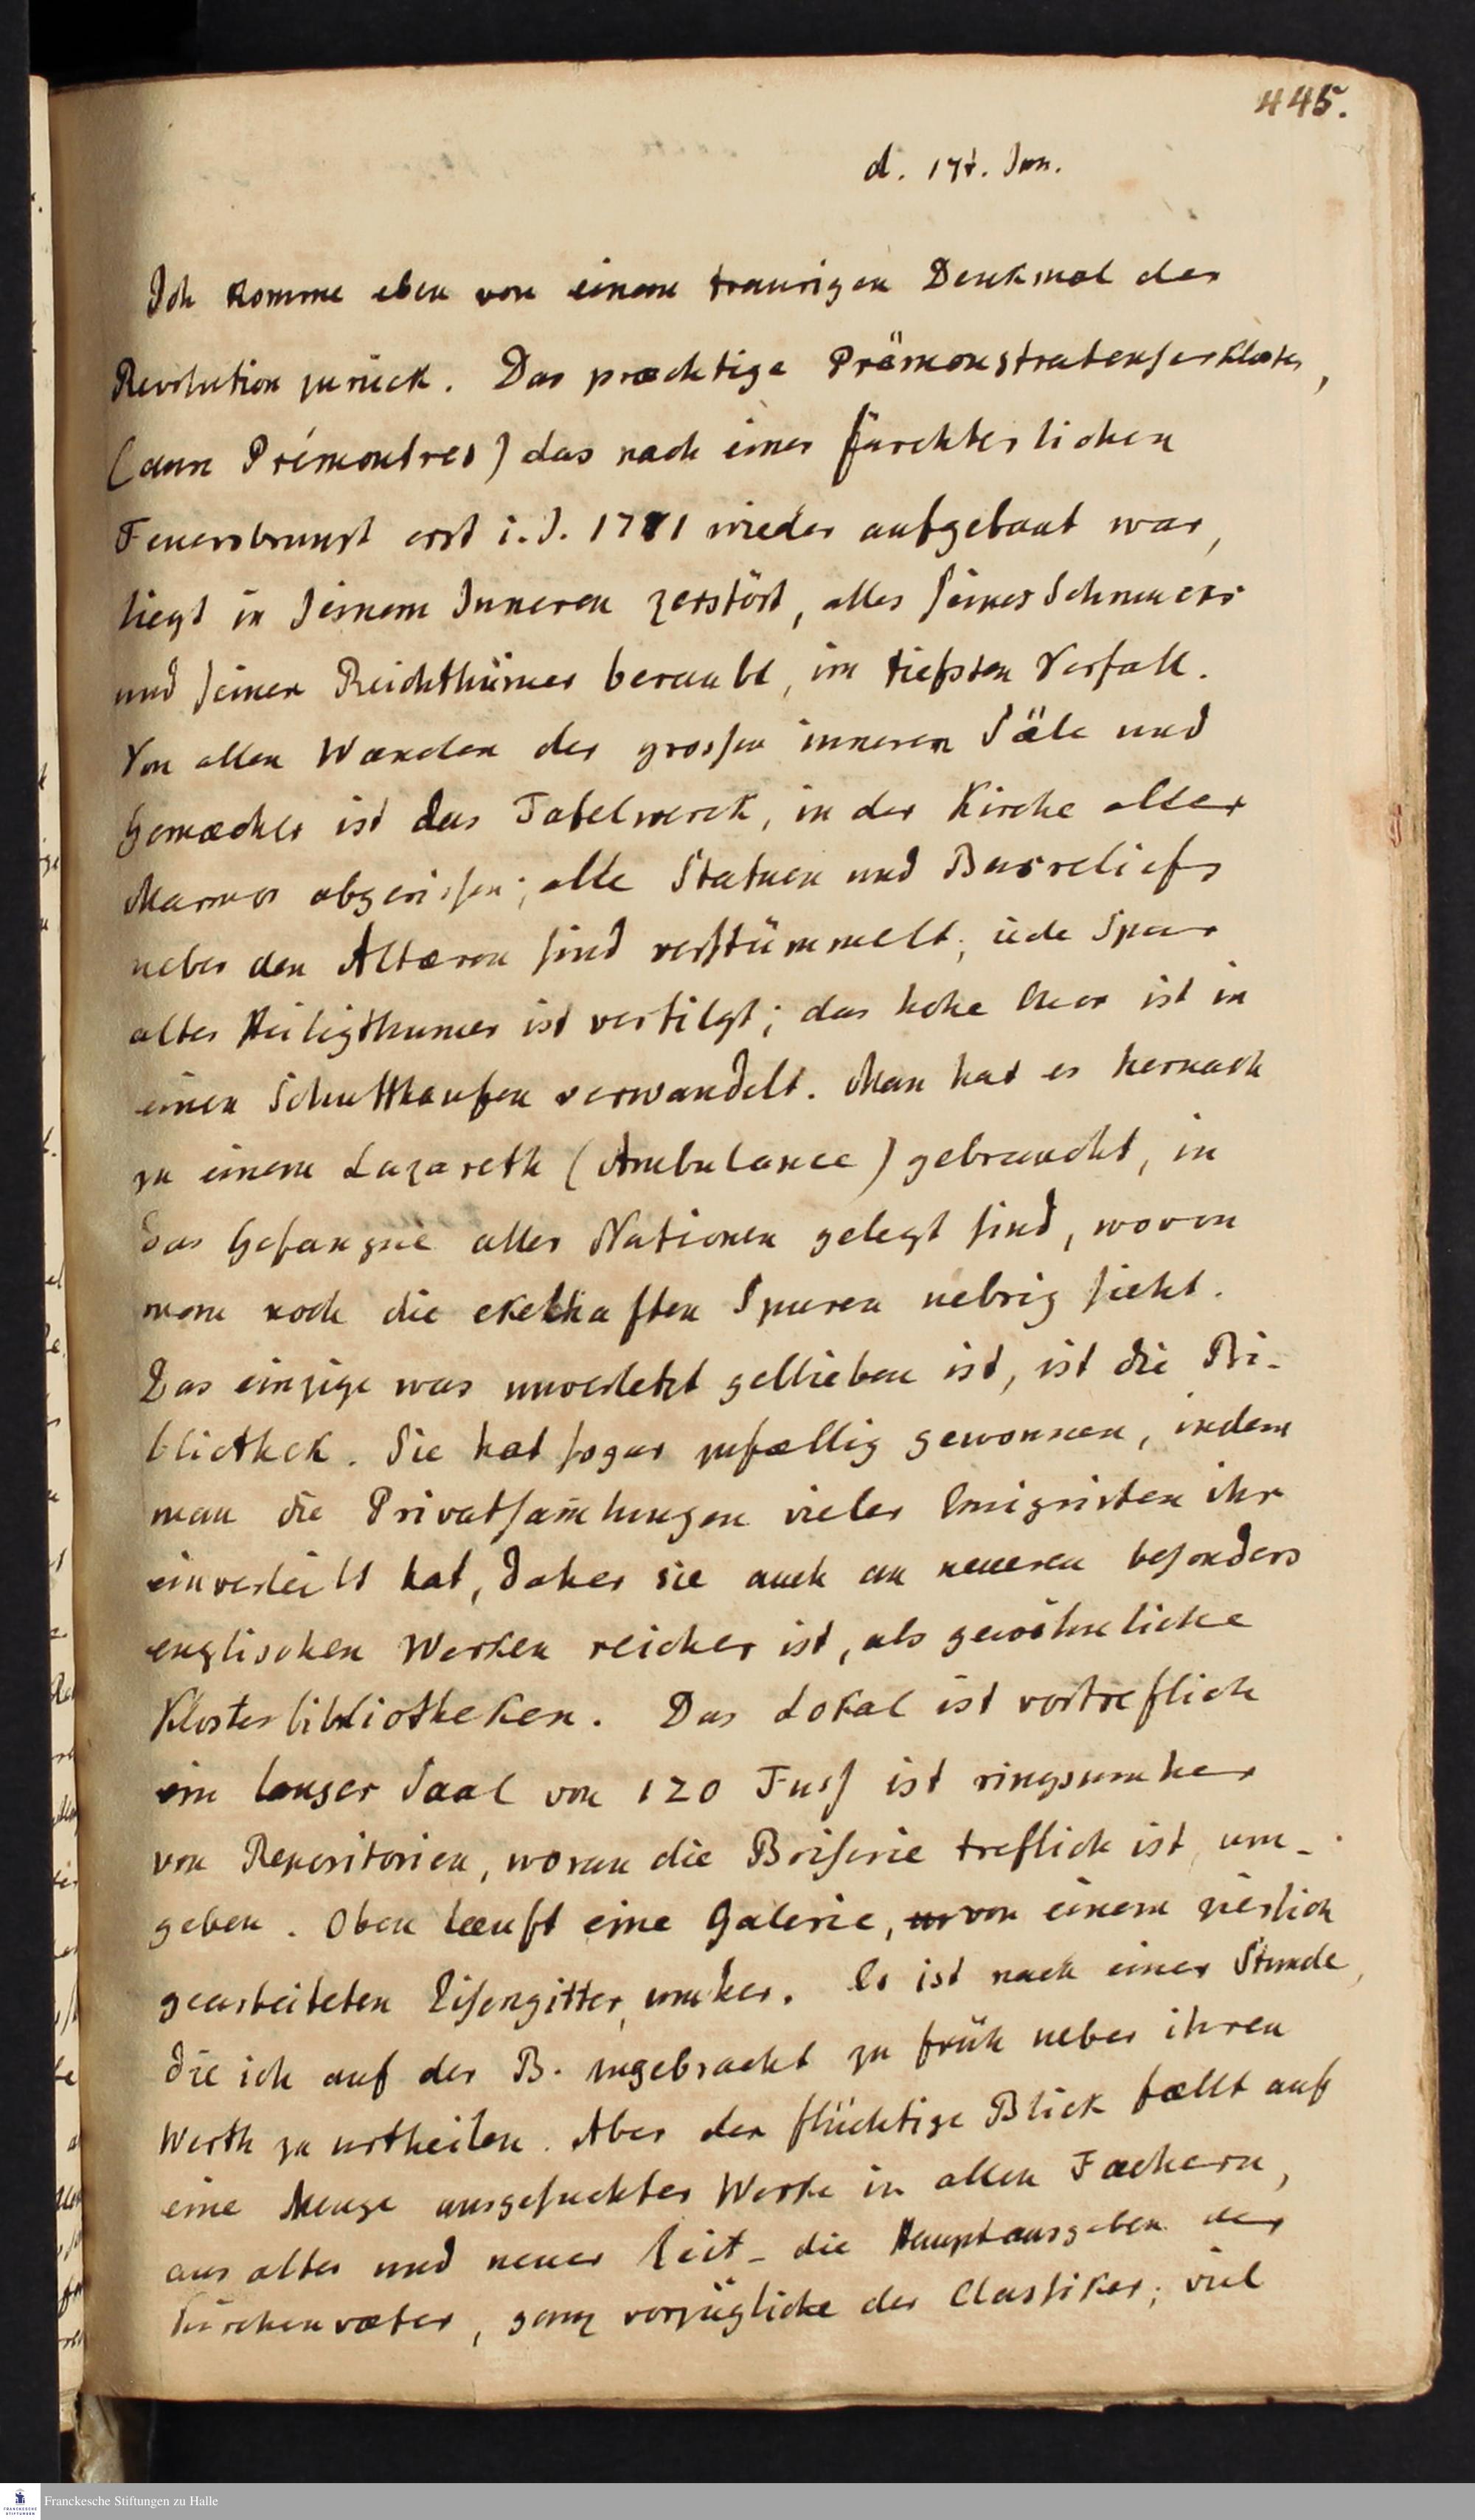 445.
d. 17t. Jan.
Ich komme eben von einem traurigen Denkmal der
Revolution zurück. Das præchtige Prämonstratenserkloster,
(aux Prémontres) das nach einer fürchterlichen
Feuersbrunst erst i. J. 1781 wieder aufgebaut war,
liegt in seinem Inneren zerstört, alles seines Schmucks
und seiner Reichthümer beraubt, im tiefsten Verfall.
Von allen Wænden der grossen inneren Säle und
Gemæcher ist das Tafelwerck, in der Kirche aller
Marmor abgerissen; alle Statuen und Basreliefs
ueber den Altæren sind verstümmelt; iede Spur
alter Heiligthumer ist vertilgt; das hohe Chor ist in
einen Schutthaufen verwandelt. Man hat es hernach
zu einem Lazareth (Ambulance) gebraucht, in
das Gefangne aller Nationen gelegt sind, wovon
man noch die ekelhaften Spuren uebrig sieht.
Das einzige was unverletzt geblieben ist, ist die Bi-
bliothek. Sie hat sogar zufællig gewonnen, indem
man die Privatsam̄lungen vieler Emigrirten ihr
einverleibt hat, daher sie auch an neueren besonders
englischen Werken reicher ist, als gewöhnliche
Klosterbibliotheken. Das Lokal ist vortreflich
ein langer Saal von 120 Fuss ist ringsumher
von Repositorien, woran die Boiserie treflich ist, um-
geben. Oben læuft eine Galerie, von einem zierlich
gearbeiteten Eisengitter, umher. Es ist nach einer Stunde,
die ich auf der B. zugebracht zu früh ueber ihren
Werth zu urtheilen. Aber der flüchtige Blick fællt auf
eine Menge ausgesuchter Werke in allen Fæchern,
aus alter und neuer Zeit - die Hauptausgaben der
Kirchenvæter, ganz vorzügliche der Classiker; viel
Franckesche Stiftungen zu Halle